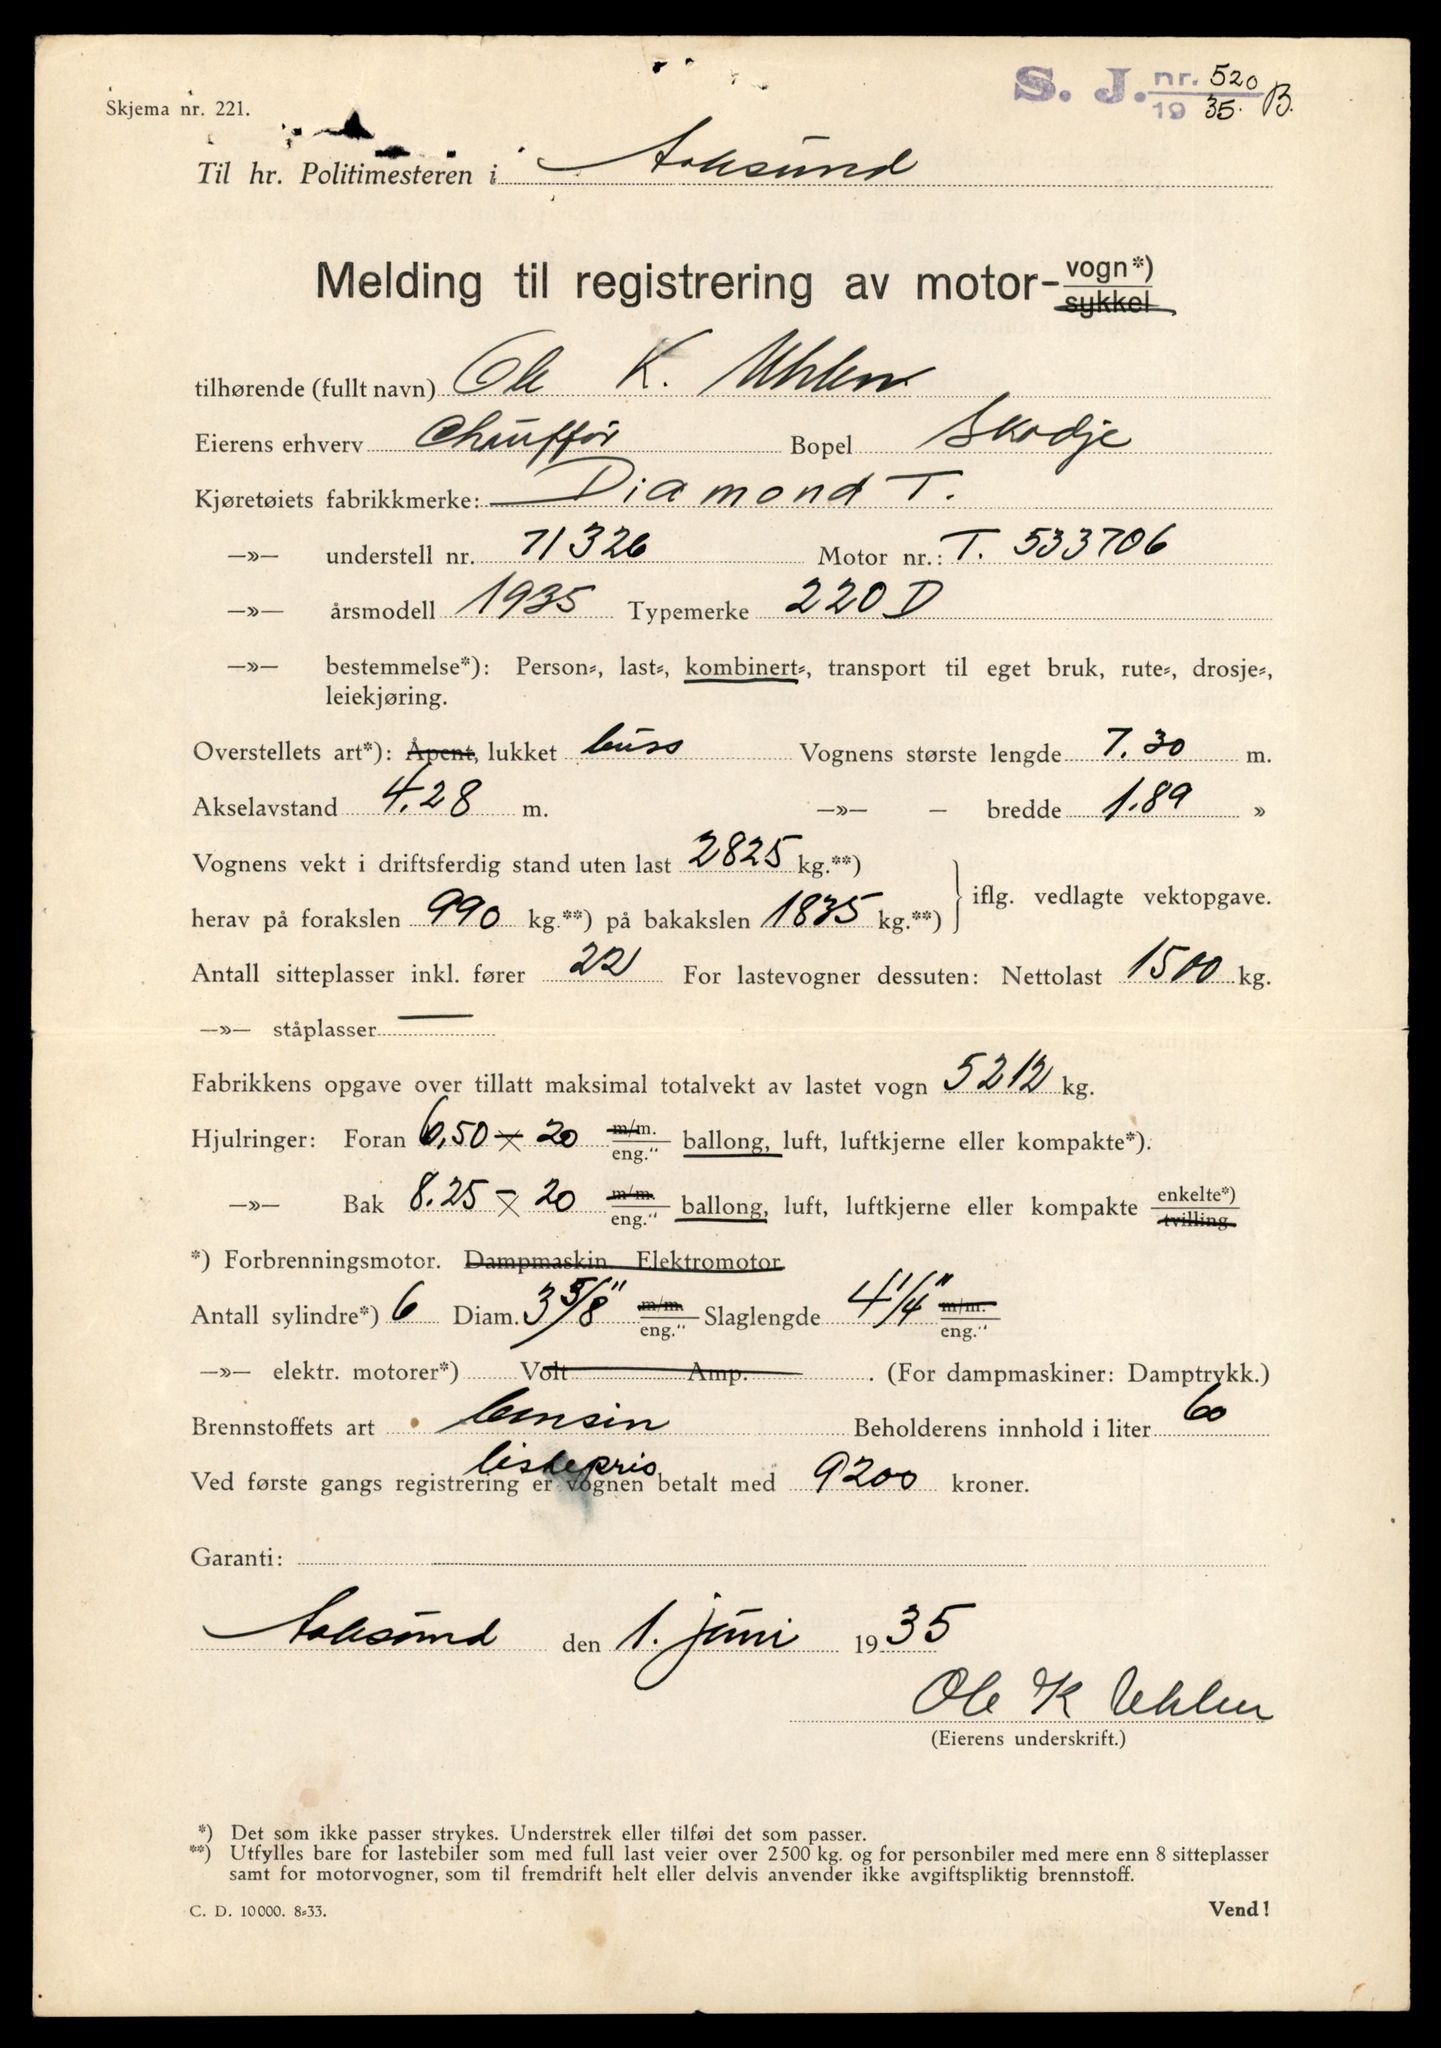 S. J. nr. 520
19 35. B.
Skjema nr. 221.
Til hr. Politimesteren i Aalesund
Melding til registrering av motor- vogn*)
sykkel
tilhørende (fullt navn) Ole K. Uhlen
Eierens erhverv Chauffør Bopel Skodje
Kjøretøiets fabrikkmerke: Diamond T.
—»— understell nr. 71326 Motor nr.: T. 533706
—»— årsmodell 1935 Typemerke 220 D
—»— bestemmelse*): Person-, last-, kombinert-, transport til eget bruk, rute-, drosje-,
leiekjøring.
Overstellets art*): Åpent, lukket buss Vognens største lengde 7.30 m.
Akselavstand 4.28 m. —»— — bredde 1.89 »
Vognens vekt i driftsferdig stand uten last 2825 kg.**)
herav på forakslen 990 kg.**) på bakakslen 1835 kg.**) iflg. vedlagte vektopgave.
Antall sitteplasser inkl. fører 22 For lastevogner dessuten: Nettolast 1500 kg.
—»— ståplasser —
Fabrikkens opgave over tillatt maksimal totalvekt av lastet vogn 5212 kg.
Hjulringer: Foran 6,50 × 20 m/m. eng." ballong, luft, luftkjerne eller kompakte*).
—»— Bak 8.25 × 20 m/m. eng." ballong, luft, luftkjerne eller kompakte enkelte*) tvilling
*) Forbrenningsmotor. Dampmaskin Elektromotor
Antall sylindre*) 6 Diam. 3 5/8" m/m. eng." Slaglengde 4 1/4" m/m. eng."
—»— elektr. motorer*) Volt Amp. . (For dampmaskiner: Damptrykk.)
Brennstoffets art bensin Beholderens innhold i liter 60
listepris
Ved første gangs registrering er vognen betalt med 9200 kroner.
Garanti:
Aalesund den 1. juni 1935
Ole K Uhlen
(Eierens underskrift.)
*) Det som ikke passer strykes. Understrek eller tilføi det som passer.
**) Utfylles bare for lastebiler som med full last veier over 2500 kg. og for personbiler med mere enn 8 sitteplasser
samt for motorvogner, som til fremdrift helt eller delvis anvender ikke avgiftspliktig brennstoff.
C. D. 10000. 8-33. Vend!